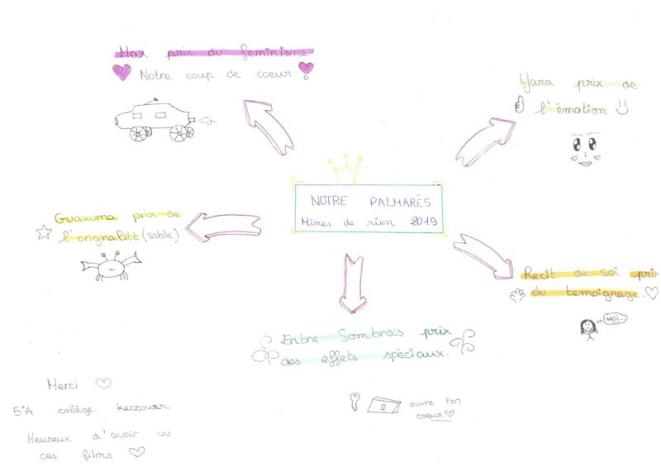 Max prix du feminisme
Notre coup de coeur
Yara prix de
l'émotion
NOTRE PALMARÈS
Mines de rien 2019
Guaxuma prix de
l'originalité (sable)
Recit de soi prix
du temoignage.
MOI...
Entre Sombras prix
des effets spéciaux.
ouvre ton
coeur
Merci
5°A collège kerzouar
Heureux d'avoir vu
ces films